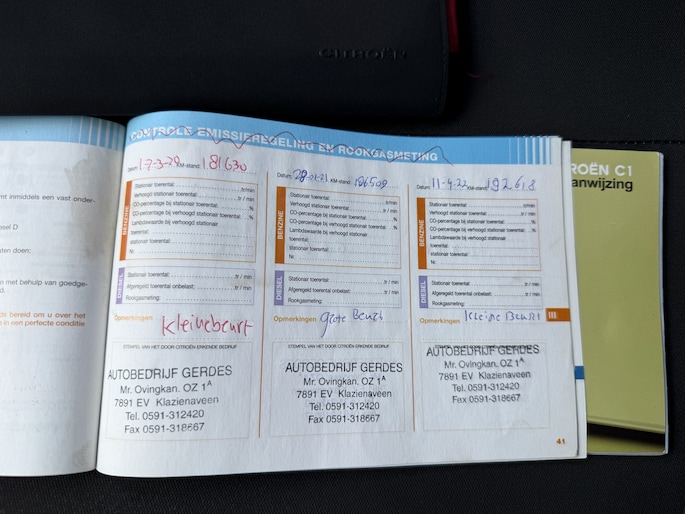 CITROËN
CONTROLE EMISSIEREGELING EN ROOKGASMETING
Datum: 17-3-20 KM-stand: 181630
BENZINE
Stationair toerental: tr/min
Verhoogd stationair toerental: tr / min
CO-percentage bij stationair toerental: %
CO-percentage bij verhoogd stationair toerental: %
Lambdawaarde bij verhoogd stationair
toerental:
stationair toerental:
Nr.
DIESEL
Stationair toerental: tr / min
Afgeregeld toerental onbelast: tr / min
Rookgasmeting:
Opmerkingen kleinebeurt
STEMPEL VAN HET DOOR CITROËN ERKENDE BEDRIJF
AUTOBEDRIJF GERDES
Mr. Ovingkan. OZ 1A
7891 EV Klazienaveen
Tel. 0591-312420
Fax 0591-318667
Datum: 28-01-21 KM-stand: 186509
BENZINE
Stationair toerental: tr/min
Verhoogd stationair toerental: tr / min
CO-percentage bij stationair toerental: %
CO-percentage bij verhoogd stationair toerental: %
Lambdawaarde bij verhoogd stationair
toerental:
stationair toerental:
Nr.
DIESEL
Stationair toerental: tr / min
Afgeregeld toerental onbelast: tr / min
Rookgasmeting:
Opmerkingen grote Beurt
STEMPEL VAN HET DOOR CITROËN ERKENDE BEDRIJF
AUTOBEDRIJF GERDES
Mr. Ovingkan. OZ 1A
7891 EV Klazienaveen
Tel. 0591-312420
Fax 0591-318667
Datum: 11-4-22 KM-stand: 192.618
BENZINE
Stationair toerental: tr/min
Verhoogd stationair toerental: tr / min
CO-percentage bij stationair toerental: %
CO-percentage bij verhoogd stationair toerental: %
Lambdawaarde bij verhoogd stationair
toerental:
stationair toerental:
Nr.
DIESEL
Stationair toerental: tr / min
Afgeregeld toerental onbelast: tr / min
Rookgasmeting:
Opmerkingen kleine Beurt
III
AUTOBEDRIJF GERDES
Mr. Ovingkan. OZ 1A
7891 EV Klazienaveen
Tel. 0591-312420
Fax 0591-318667
41
mt inmiddels een vast onder-
esel D
ten doen:
n met behulp van goedge-
ds bereid om u over het
s in een perfecte conditie
ROËN C1
anwijzing